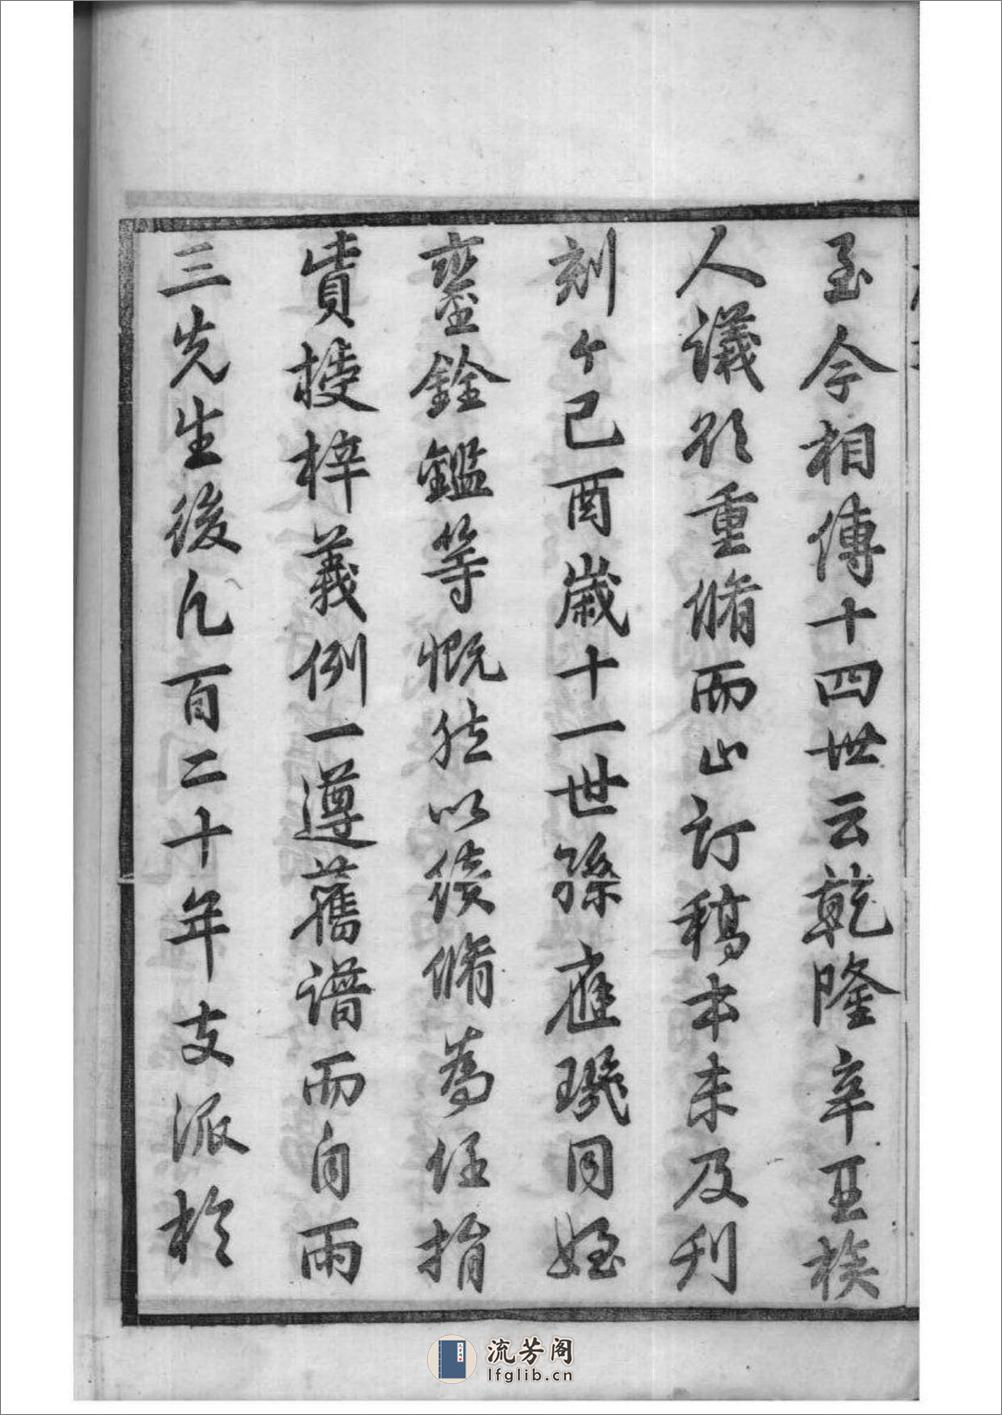 至今相傳十四世云乾隆辛丑族
人議欲重脩而止訂稿本未及刊
刻今己酉歲十一世孫應璣同姪
鑾銓鑑等慨然以續脩為任捐
貲授梓義例一遵舊譜而自兩
三先生後凡百二十年支派於
流芳阁
lfglib.cn